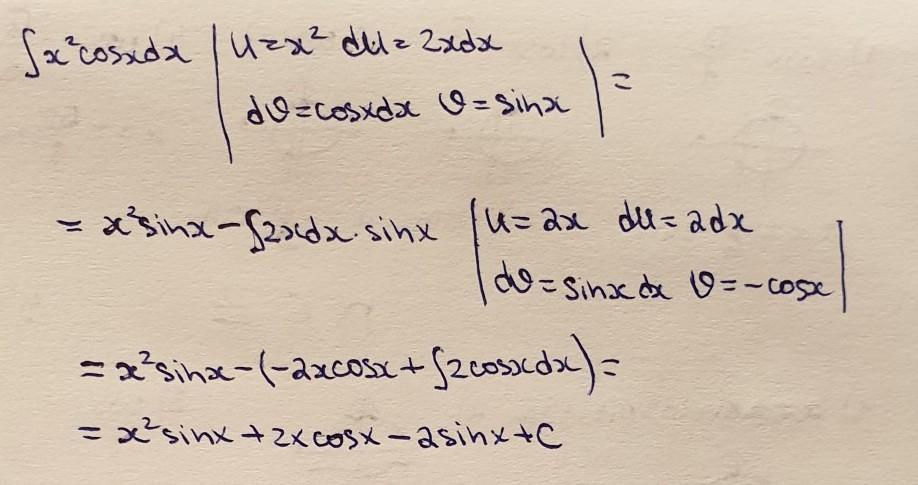 ∫x²cosxdx | u=x² du=2xdx
dv=cosxdx v=sinx | =
= x²sinx-∫2xdx·sinx | u=2x du=2dx
dv=sinx dx v=-cosx |
= x²sinx-(-2xcosx+∫2cosxdx)=
= x²sinx+2xcosx-2sinx+C